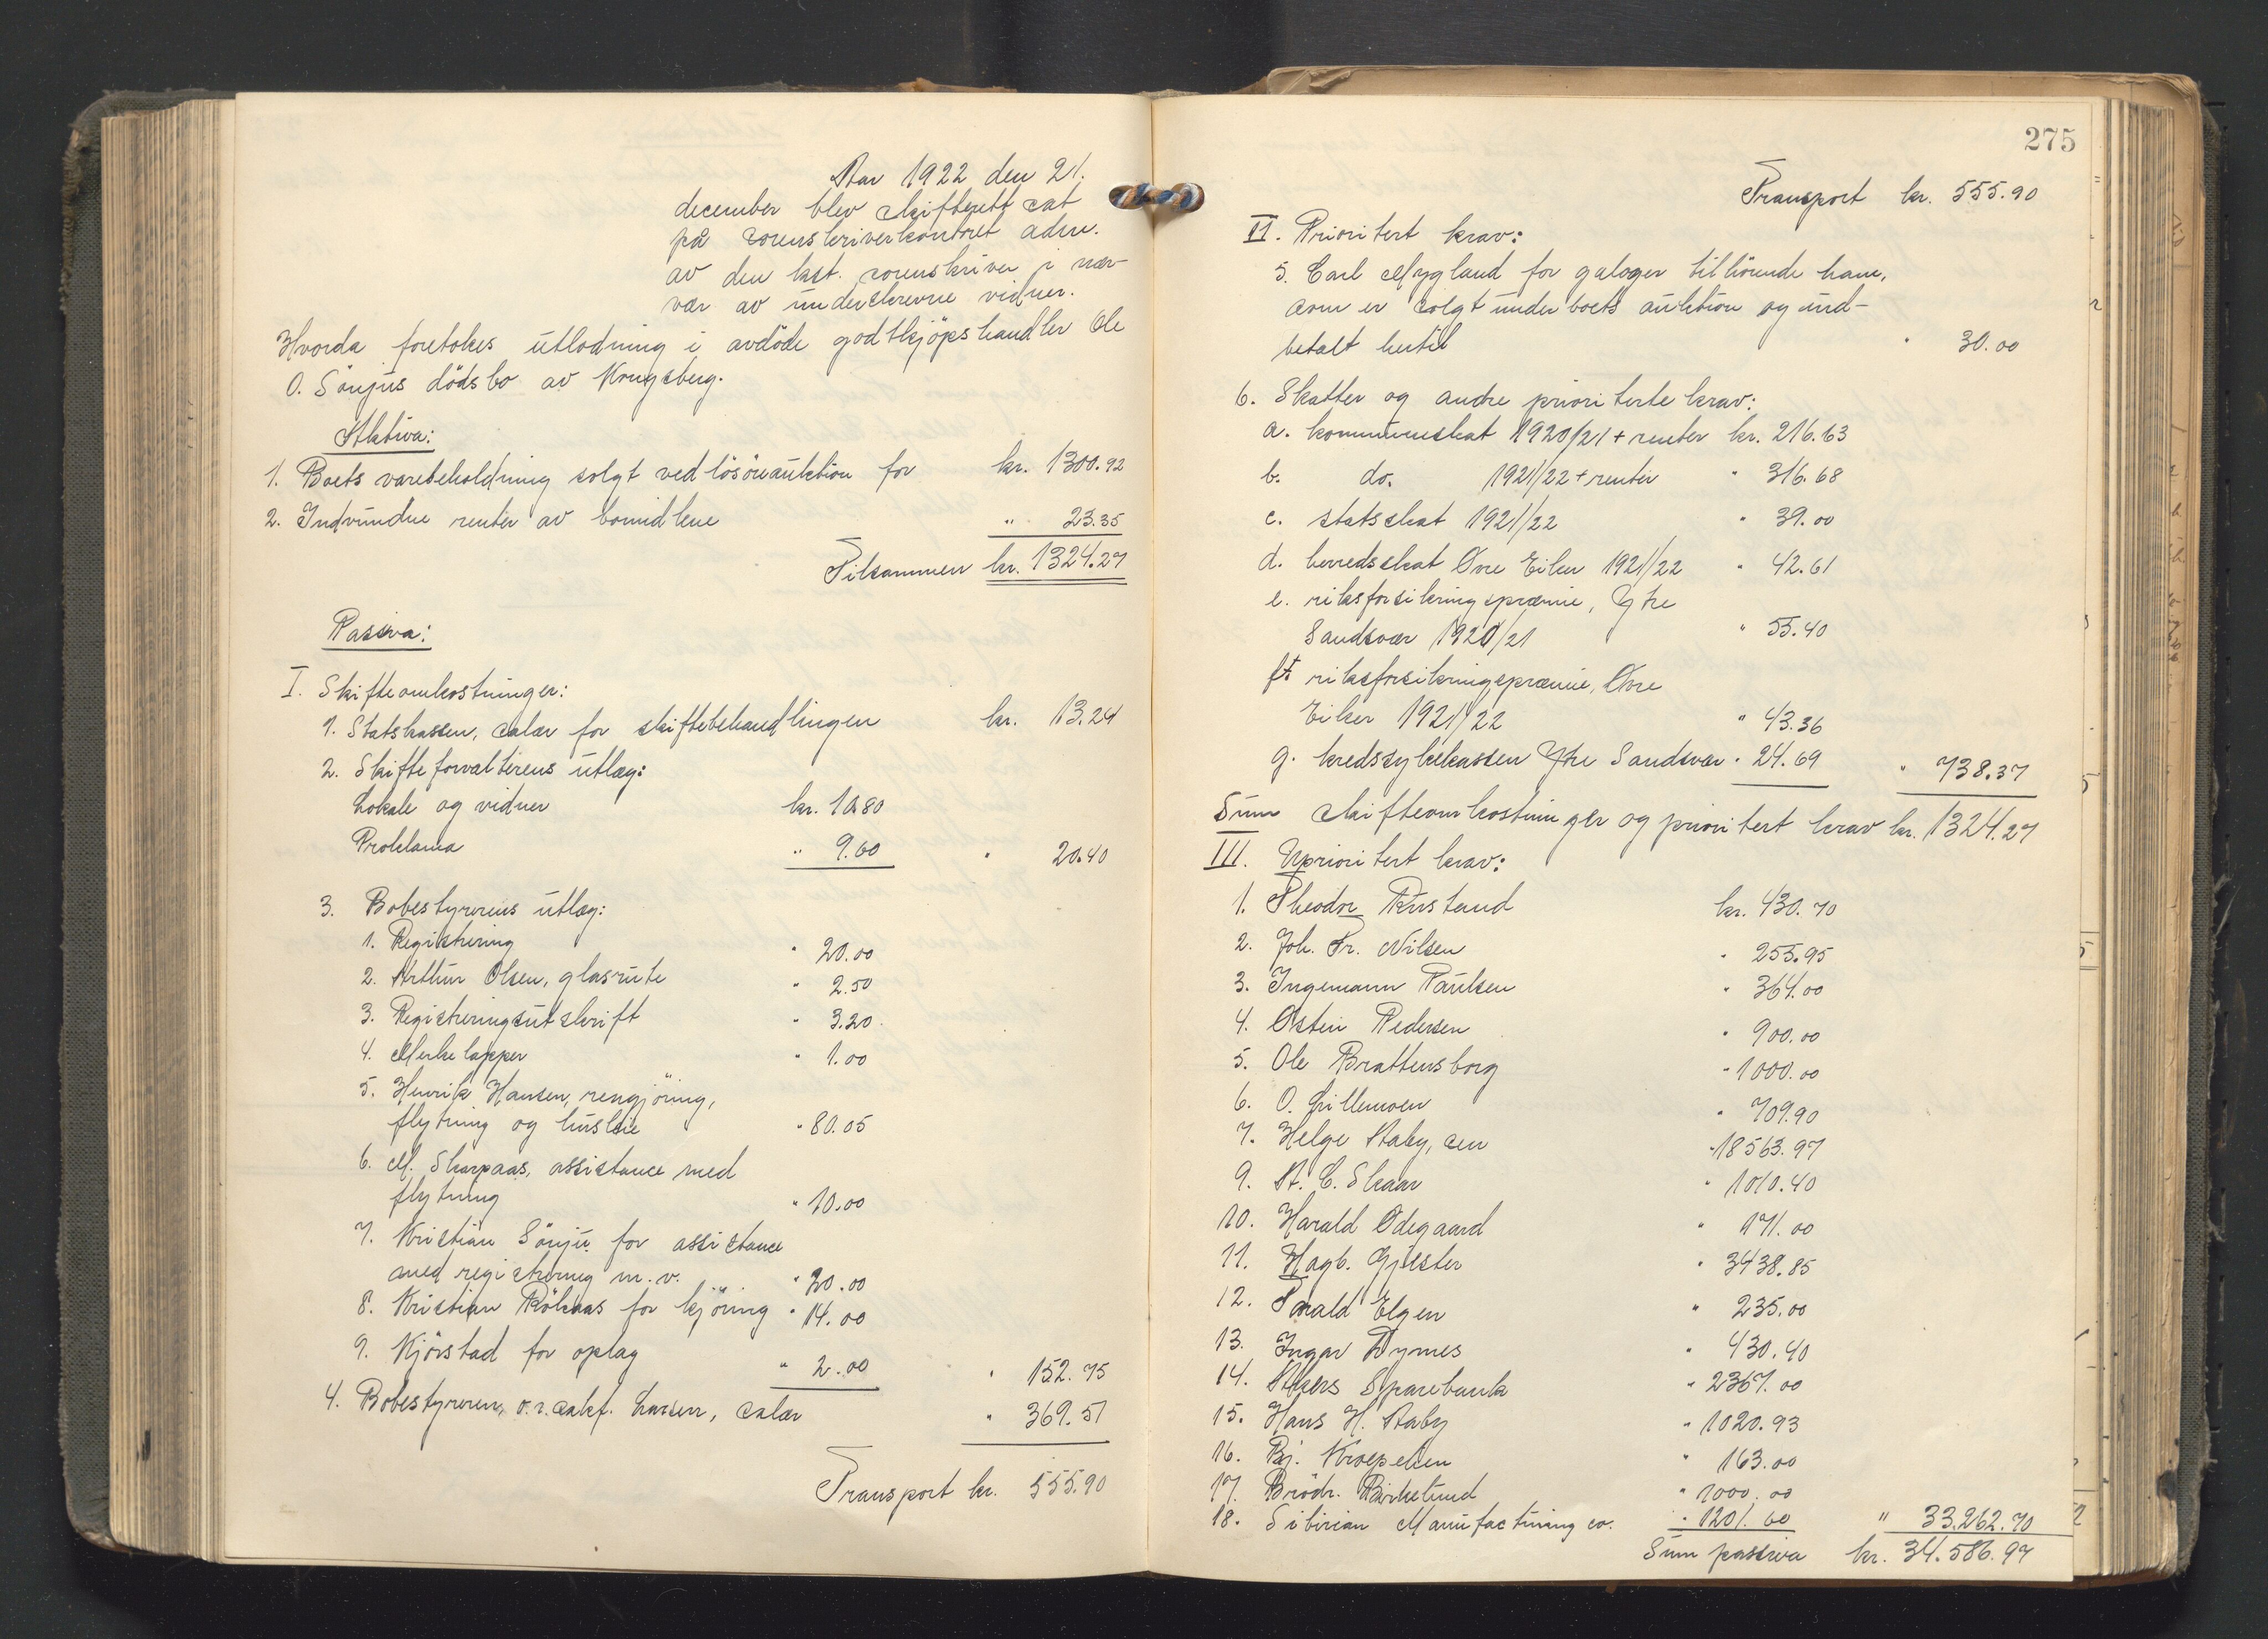 Aar 1922 den 21.
december blev skifterett sat
på sorenskriverkontoret adm.
av den kst. sorenskriver i nær-
vær av underskrevne vidner.
Hvorda foretokes utlodning i avdöde godtkjöpshandler Ole
O. Sönjus dödsbo av Kongsberg.
Aktiva:
1. Boets varebeholdning solgt ved lösöreauktion for kr. 1300.92
2. Indvundne renter av bomidlene " 23.35
Tilsammen kr. 1324.27
Passiva:
I. Skifteomkostninger:
1. Statskassen, salær for skiftebehandlingen kr. 13.24
2. Skifteforvalterens utlæg:
Lokale og vidner kr. 10.80
Proklama " 9.60 " 20.40
3. Bobestyrerens utlæg:
1. Registrering " 20.00
2. Arthur Olsen, glasrute " 2.50
3. Registreringsutskrift " 3.20
4. Merkelapper " 1.00
5. Henrik Hansen, rengjöring,
flytning og husleie " 80.05
6. M. Skarpaas, assistance med
flytning " 10.00
7. Kristian Sönju for assistance
med registrering m.v. " 20.00
8. Kristian Kölaas for kjöring " 14.00
9. Kjörstad for oplag " 2.00 " 152.75
4. Bobestyreren, o.r.sakf. Larsen, salær " 369.51
Transport kr. 555.90
275
Transport kr. 555.90
II. Prioritert krav:
5. Carl Mygland for galoger tilhörende ham,
som er solgt under boets auktion og ind-
betalt hertil " 30.00
6. Skatter og andre prioriterte krav:
a. kommuneskat 1920/21 + renter kr. 216.63
b. do. 1921/22 + renter " 316.68
c. statsskat 1921/22 " 39.00
d. herredsskat Øvre Eiker 1921/22 " 42.61
e. riksforsikringspræmie, Ytre
Sandsvær 1920/21 " 55.40
f. riksforsikringspræmie, Øvre
Eiker 1921/22 " 43.36
g. kredssykekassen Ytre Sandsvær " 24.69 " 738.37
Sum skifteomkostninger og prioritert krav kr. 1324.27
III. Uprioritert krav:
1. Theodor Rustand kr. 430.70
2. Joh. Fr. Nilsen " 255.95
3. Ingemann Paulsen " 364.00
4. Østen Pedersen " 900.00
5. Ole Brattensborg " 1000.00
6. O. Lillemoen " 709.90
7. Helge Aaby, sen " 18563.97
9. A. C. Skaar " 1010.40
10. Harald Ødegaard " 171.00
11. Hagb. Gjester " 3438.85
12. Smald Elgen " 235.00
13. Ingar Dymes " 430.40
14. Akers Sparebank " 2367.00
15. Hans H. Aaby " 1020.93
16. Bj. Kroepelien " 163.00
17. Brödr. Birkelund " 1000.00
18. Sibirian Manufacturing co. " 1201.60 " 33.262.70
Sum passiva kr. 34.586.97